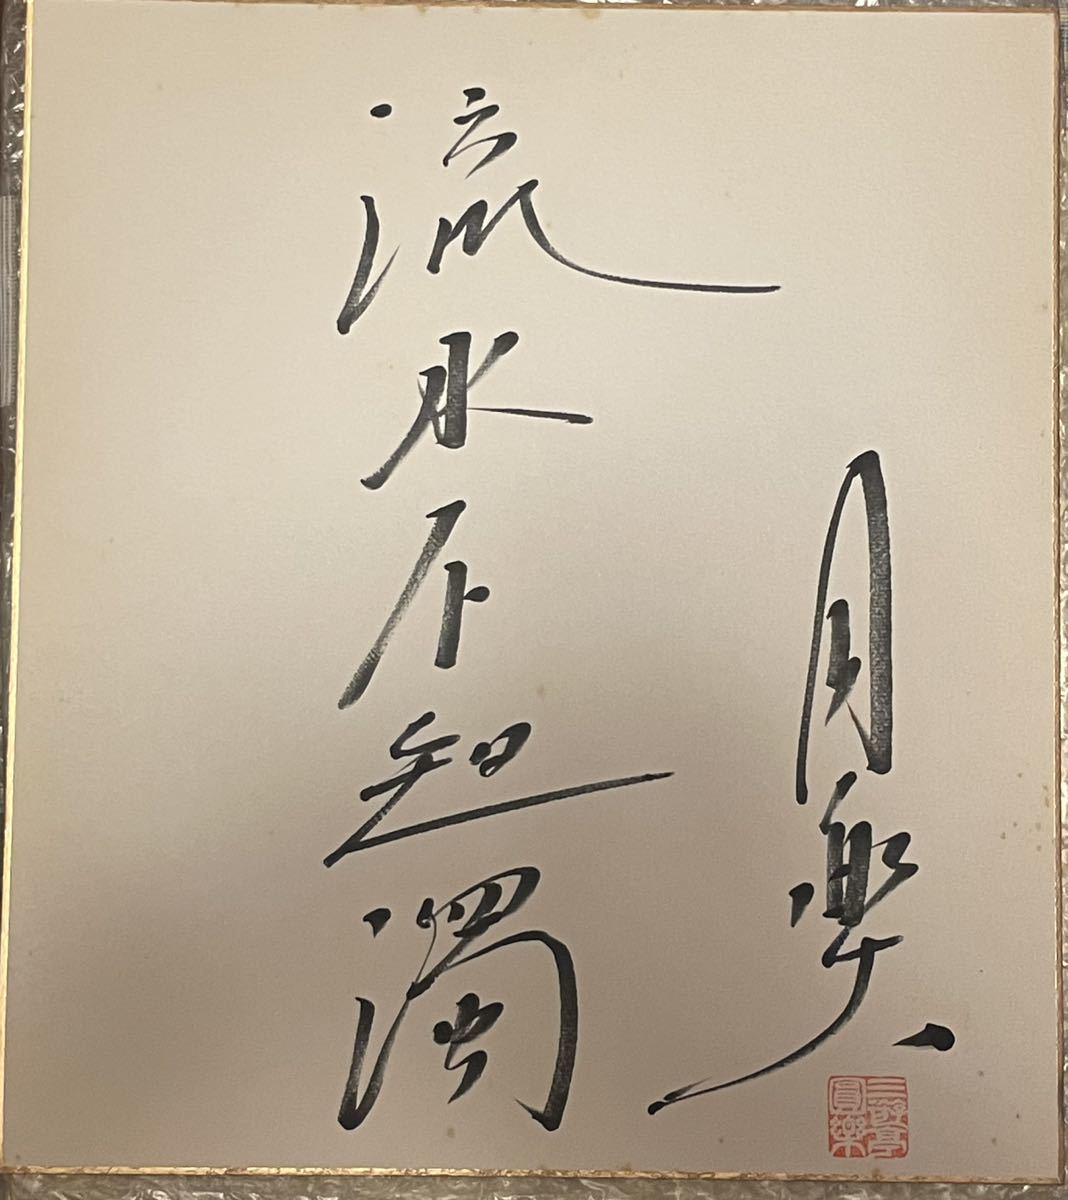 円楽
流水不知濁
三遊亭
圓樂